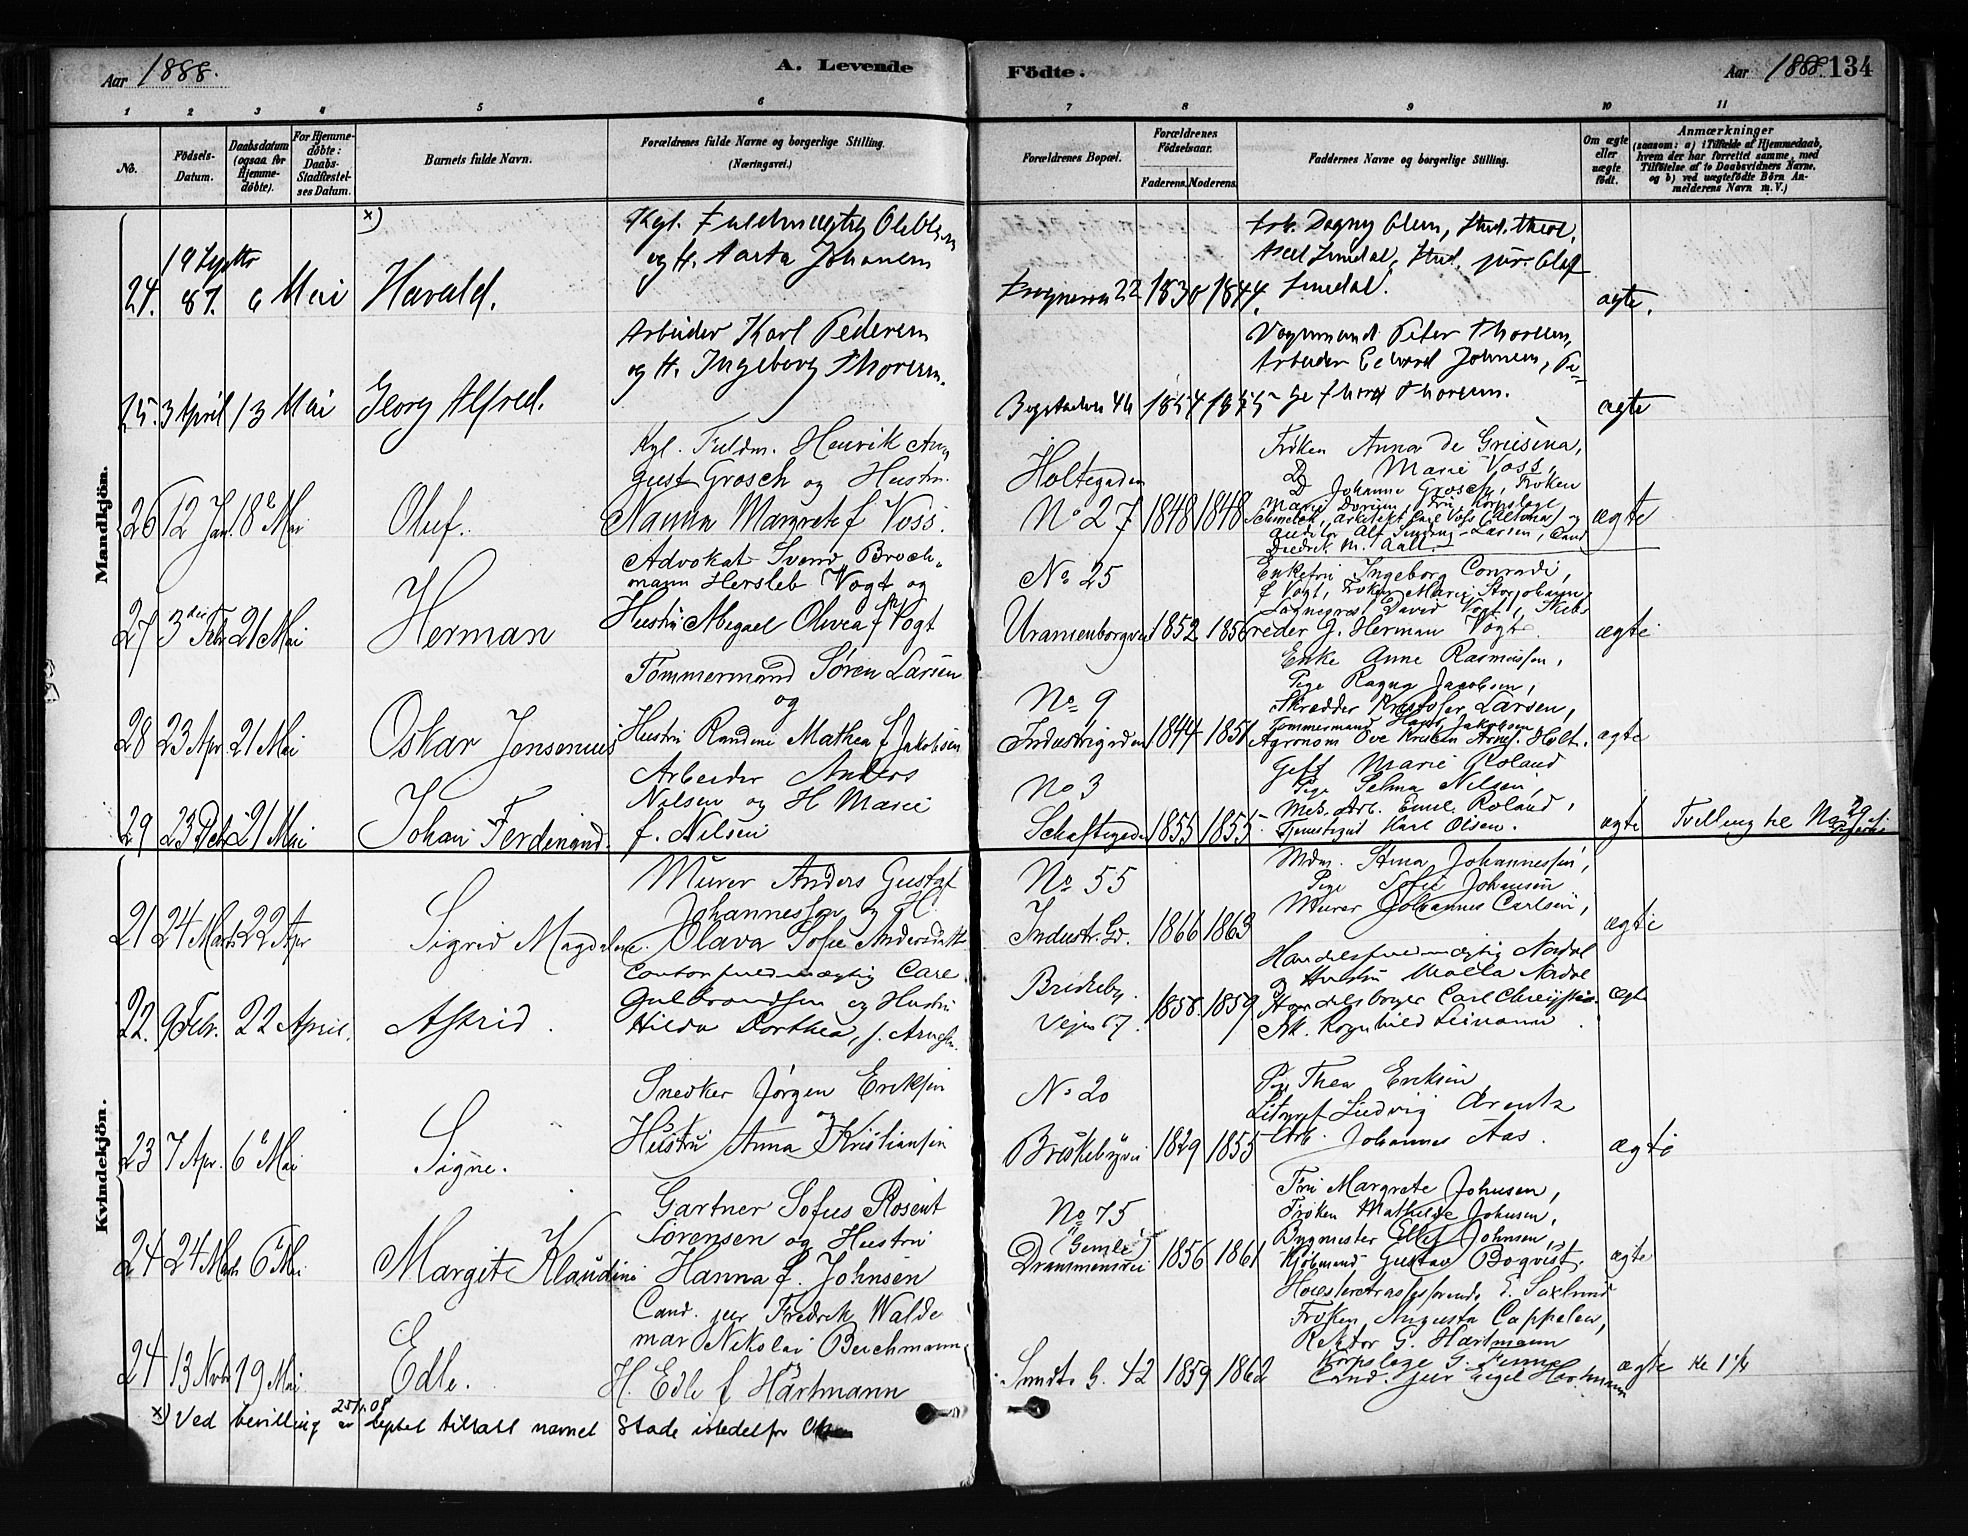 Aar 1888. A. Levende Födte. Aar 1888. 134
1 2 3 4 5 6 7 8 9 10 11
No.
Födsels-Datum.
Daabsdatum (ogsaa for Hjemme-döbte).
For Hjemme-döbte: Daabs-Stadfæstel-ses Datum.
Barnets fulde Navn.
Forældrenes fulde Navne og borgerlige Stilling. (Næringsvei.)
Forældrenes Bopæl.
Forældrenes Födselsaar.
Faderens. Moderens.
Faddernes Navne og borgerlige Stilling.
Om ægte eller uægte födt.
Anmærkninger
(saasom: a) i Tilfælde af Hjemmedaab,
hvem der har forrettet samme, med
Tilföielse af to Daabsvidners Navne,
og b) ved uægtefödte Börn An-
melderens Navn m. V.)
Mandkjön.
x)
24. 19 Septbr 87. 6 Mai
Harald.
og H. Marta Johansen
22 1830 1844
Dagny Olsen, Stud. theol.
Axel Lindal, Stud. jur. Olaf
Lindal.
ægte.
25. 3 April 13 Mai
Georg Alfred.
Arbeider Karl Pedersen
og H. Ingeborg Thoresen.
Bogstadvn 46 1854 1855
Vognmand Peter Thoresen,
Arbeider Edvard Johnsen, Pi-
ge Thora Thoresen.
ægte
26 12 Jan. 18 Mai
Oluf.
Kgl. Fuldm. Henrik Au-
gust Grosch og Hustru
Nanna Margrete f Voss.
Holtegaden
No 27 1848 1848
Frøken Anna de Greisena,
D Marie Voss,
D Johanne Grosch, Frøken
Schmelck, Arkitekt Carl Voss (Altona) og
Auditør Alf Sinding-Larsen, Cand
Diedrik M. Aall.
ægte
27 3die Febr 21 Mai
Herman
Advokat Svend Broch-
mann Hersleb Vogt og
Hustru Abegael Olivea f Vogt
No 25
Uranienborgvei 1852 1856
Enkefru Ingeborg Conradi,
f Vogt, Frøken Marie Storjohann,
Sogneprest David Vogt, Skibs
reder J. Herman Vogt.
ægte
28 23 Apr. 21 Mai
Oskar Jensenius
Tømmermand Søren Larsen
og
Hustru Randine Mathea f Jakobsen
No 9
Industrigaden 1844 1851
Enke Anne Rasmussen,
Pige Ragna Jacobsen,
Skrædder Kristofer Larsen,
Tømmermand Hans Jakobsen
Agronom Ove Kristian Holt.
ægte
29 23 Febr 21 Mai
Johan Ferdinand.
Arbeider Anders
Nilsen og H Marie
f. Nilsen
No 3
Schaftegaden 1855 1855
Gift Marie Roland
Pige Selma Nilsen,
Mek. Arb. Emil Roland,
Tjenestegut Karl Olsen.
ægte Tvilling til No 29
Kvindekjön.
21 24 Marts 22 Apr
Sigrid Magdalene.
Murer Anders Gustaf
Johannesson og H.
Olava Sofie Andersdatter
No 55
Industr. Gd. 1866 1863
Mdm. Stina Johannessen,
Pige Sofie Johansen
Murer Johannes Carlsen,
ægte
22. 9 Febr. 22 April.
Astrid.
Contorfuldmægtig Carl
Gulbrandsen og Hustru
Hilda Dorthea, f. Arnesen.
Briskeby
Vejen 67 1858. 1859
Handelsfuldmægtig Nordal
og Hustru Malla Nordal
Handelsborger Carl
Frk. Ragnhild
ægte
23 7 Apr. 6 Mai
Signe.
Snedker Jørgen Eriksen
og
Hustru Anna f Kristiansen
No 20
Briskebyvei 1829 1855
Pige Thea Eriksen
Litograf Ludvig Arentz
Arb. Johannes Aas.
ægte
24 24 Marts 6 Mai
Margit Klaudine
Gartner Sofus Rosent
Sørensen og Hustru
Hanna f. Johnsen
No 75
(Gimle)
Drammensvei 1856 1861
Fru Margrete Johnsen,
Frøken Mathilde Johnsen,
Bygmester Ellef Johnsen,
Kjøbmand Gustav Boqvist.
ægte
24 13 Novbr 19 Mai
Edle.
Cand. jur Fredrik Walde
mar Nikolai Beichmann,
H. Edle f Hartmann
Smidts G. 42 1859 1862
Høiesteretsassessorinde E. Saxlund
Frøken Augusta Cappelen,
Rektor G. Hartmann
Korpslæge G.
Cand. jur Egil Hartmann
ægte
x) Ved bevilling 25/1 08 er døpte tillatt navnet Stade istedetfor Olsen